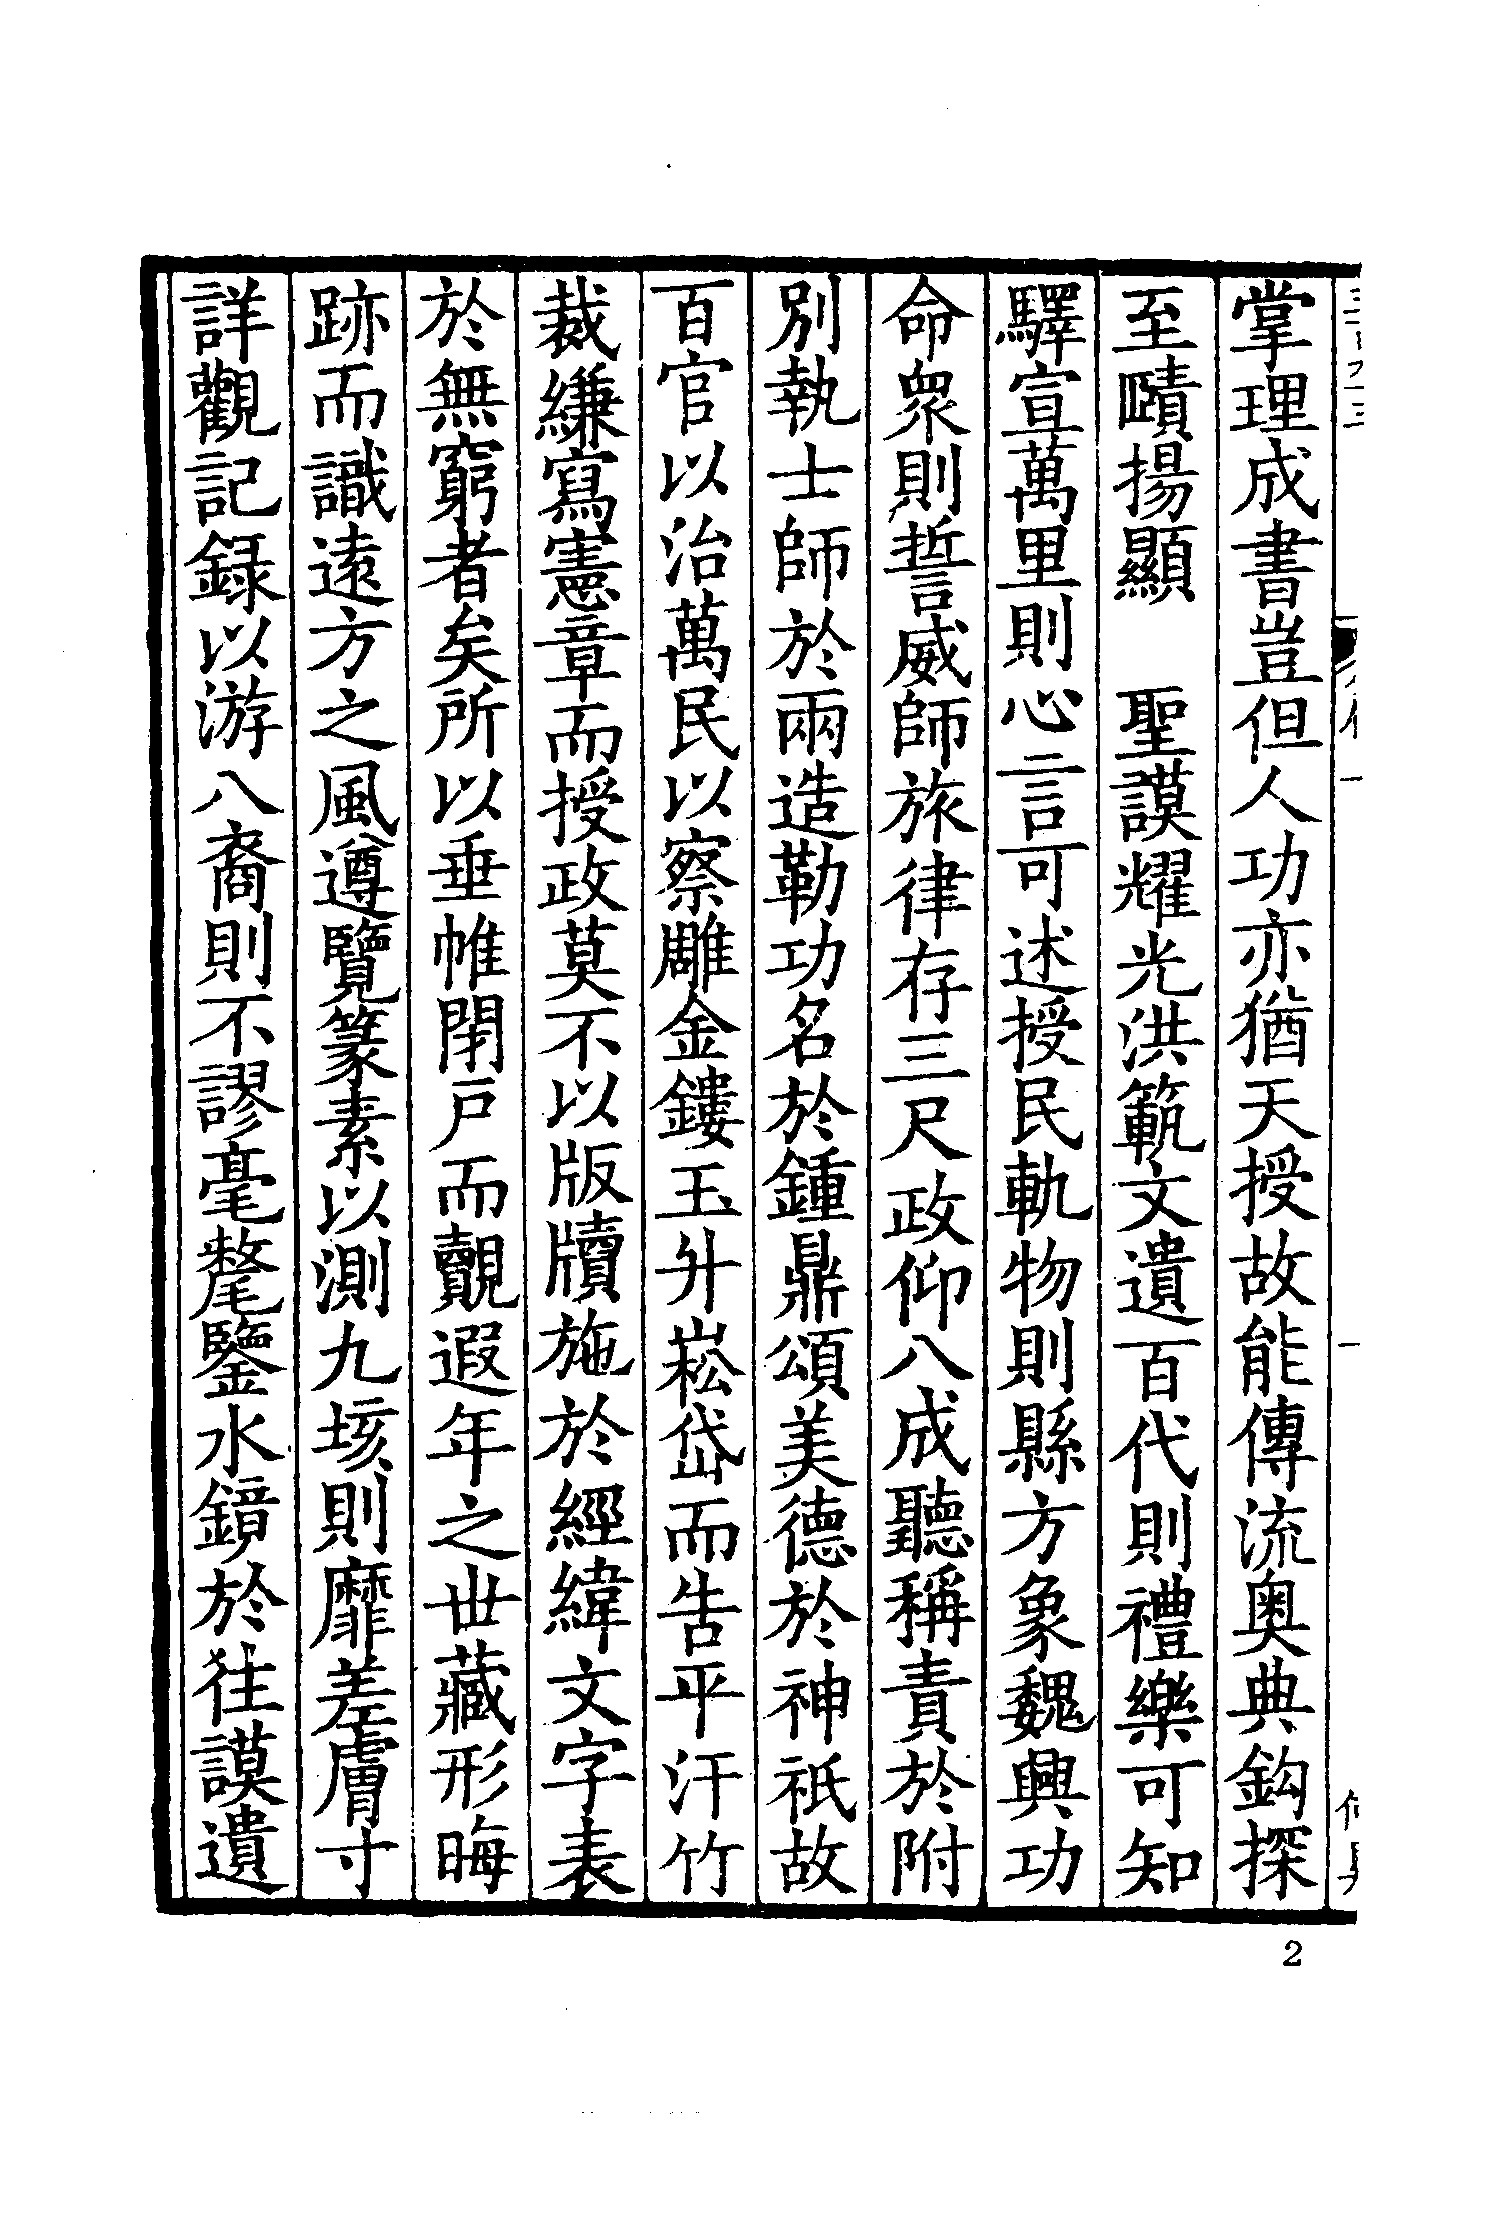 掌理成書豈但人功亦猶天授故能傳流奥典鈎探
至賾揚顯　聖謨耀光洪範文遺百代則禮樂可知
驛宣萬里則心言可述授民軌物則縣方象魏興功
命衆則誓威師旅律存三尺政仰八成聽稱責於附
別執士師於兩造勒功名於鍾鼎頌美德於神祇故
百官以治萬民以察雕金鏤玉升崧岱而告平汗竹
裁縑寫憲章而授政莫不以版牘施於經緯文字表
於無窮者矣所以垂帷閉戸而覿遐年之世藏形晦
跡而識遠方之風遵覽篆素以測九垓則靡差膚寸
詳觀記録以游八裔則不謬毫氂鑒水鏡於往謨遺
2